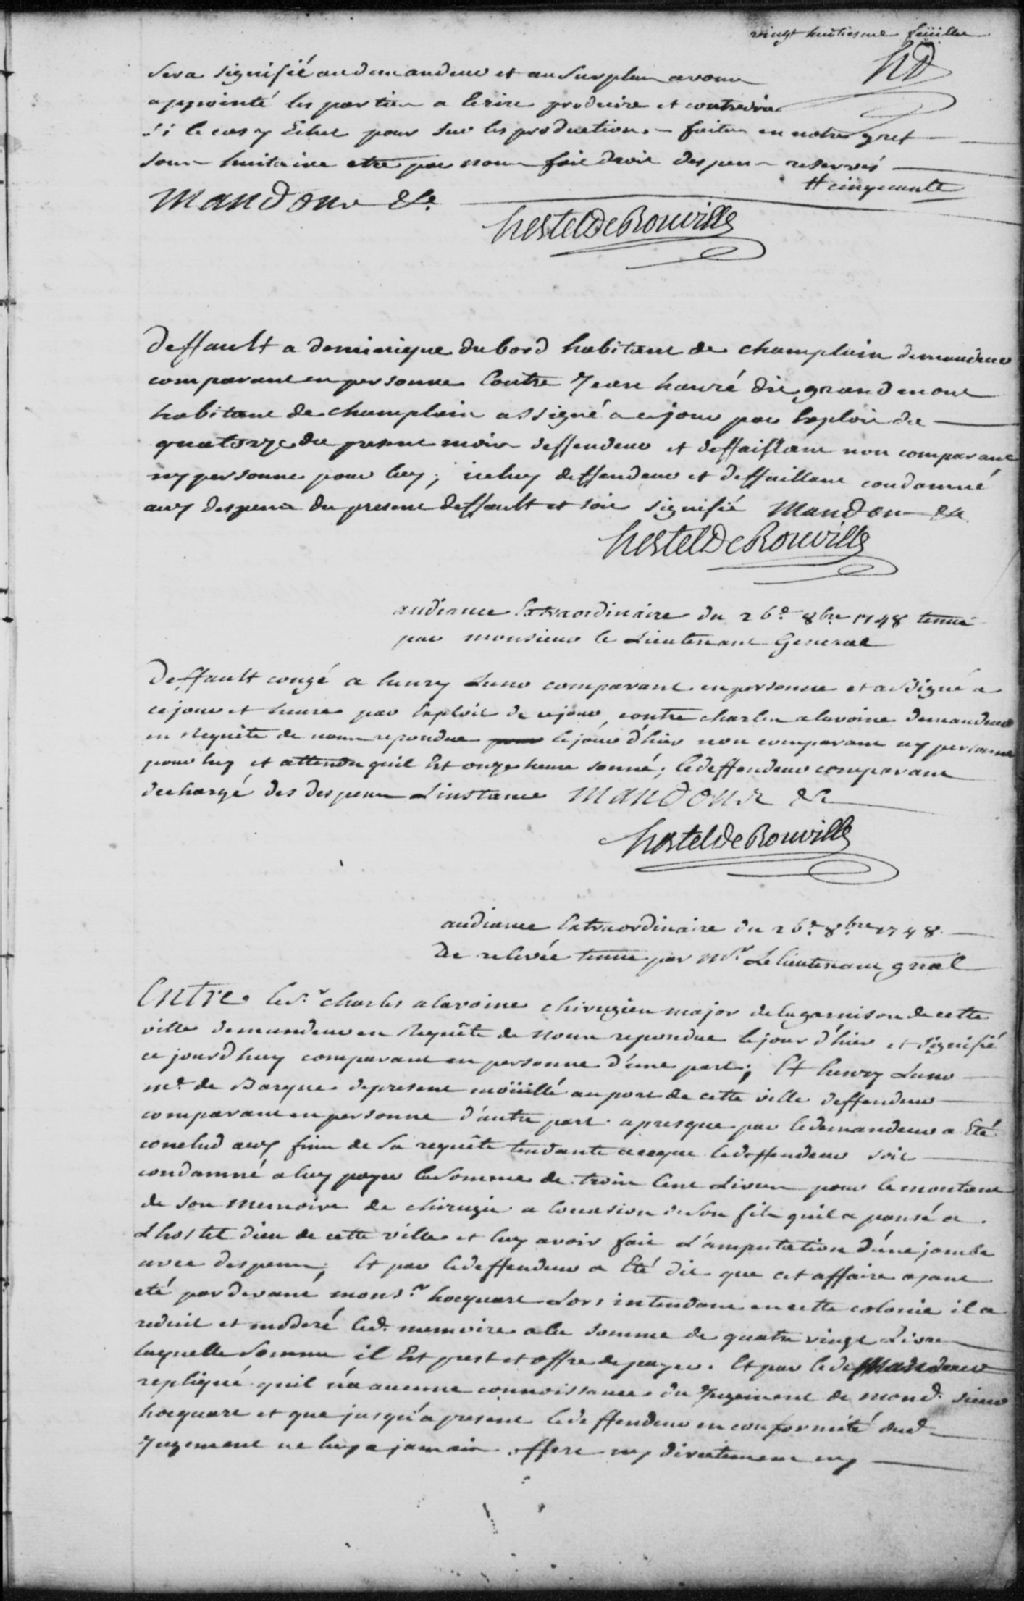 vingt huitiesme feüille
hd
sera signifié au demandeur et au surplus avons
appointé les parties a Ecrire produire et contredire
si le cas y Echet pour sur les productions faites en notre gref
sous huitaine etre par nous fait droit despens reservés
# cinquante
Mandons &c.
hertel de Rouville
Deffault a dominique dubord habitant de champlain demandeur
comparant en personne Contre Jean hauré dit grandmont
habitant de champlain assigné a ce jour par Exploit du
quatorze du present mois deffendeur et deffaillant non comparant
ny personne pour luy; iceluy deffendeur et deffaillant condamné
aux despens du present deffault et soit signifié Mandons &c
hertel de Rouville
audiance Extraordinaire du 26e. 8bre 1748 tenue
par monsieur le Lieutenant General
Deffault congé a henry Luno comparant en personne et assigné a
ce jour et heure par Exploit de ce jour, contre charles alavoine demandeur
en Requête de nous repondue le jour d'hier non comparant ny personne
pour luy et attendu quil Est onze heure sonné; le deffendeur comparant
dechargé des despens Linstance Mandons &c
hertel de Rouville
audiance Extraordinaire du 26e. 8bre 1748.
De relevée tenue par Mr. Le lieutenant gnal
Entre. le Sr. charles alavoine chirurgien major de la garnison de cette
ville demandeur en Requête de nous repondue le jour d'hier et signifié
ce jourdhuy comparant en personne d'une part; Et henry Luno
md. de Barque de present moüillé au port de cette ville deffendeur
comparant en personne d'autre part. apresque par le demandeur a Eté
conclud aux fins de sa requête tendante a ceque le deffendeur soit
condamné a luy payer la somme de trois Cent Livres pour le montant
de son memoire de chirurgie a locasion de son fils quil a pansé a
Lhostel dieu de cette ville et luy avoir fait L'amputation d'une jambe
avec despens; Et par le deffendeur a Eté dit que cet affaire ayant
eté par devant monsr. hocquart Lors intendant en cette colonie il a
reduit et moderé led. memoire a la somme de quatre vingt Livres
laquelle somme il Est prest et offre de payer. Et par le demandeur
repliqué quil n'a aucune connoissance du Jugement de mond. sieur
hocquart et que jusqu'a present le deffendeur en conformité dud.
Jugement ne luy a jamais offert ny directement ny